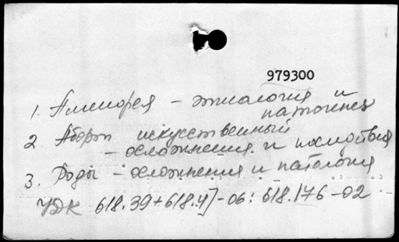 979300
1. Аменорея – этиология и
патогенез
2. Аборт искусственный
– осложнения и последствия
3. Роды – осложнения и патология
УДК 618.39+618.4]-06:618.176-02